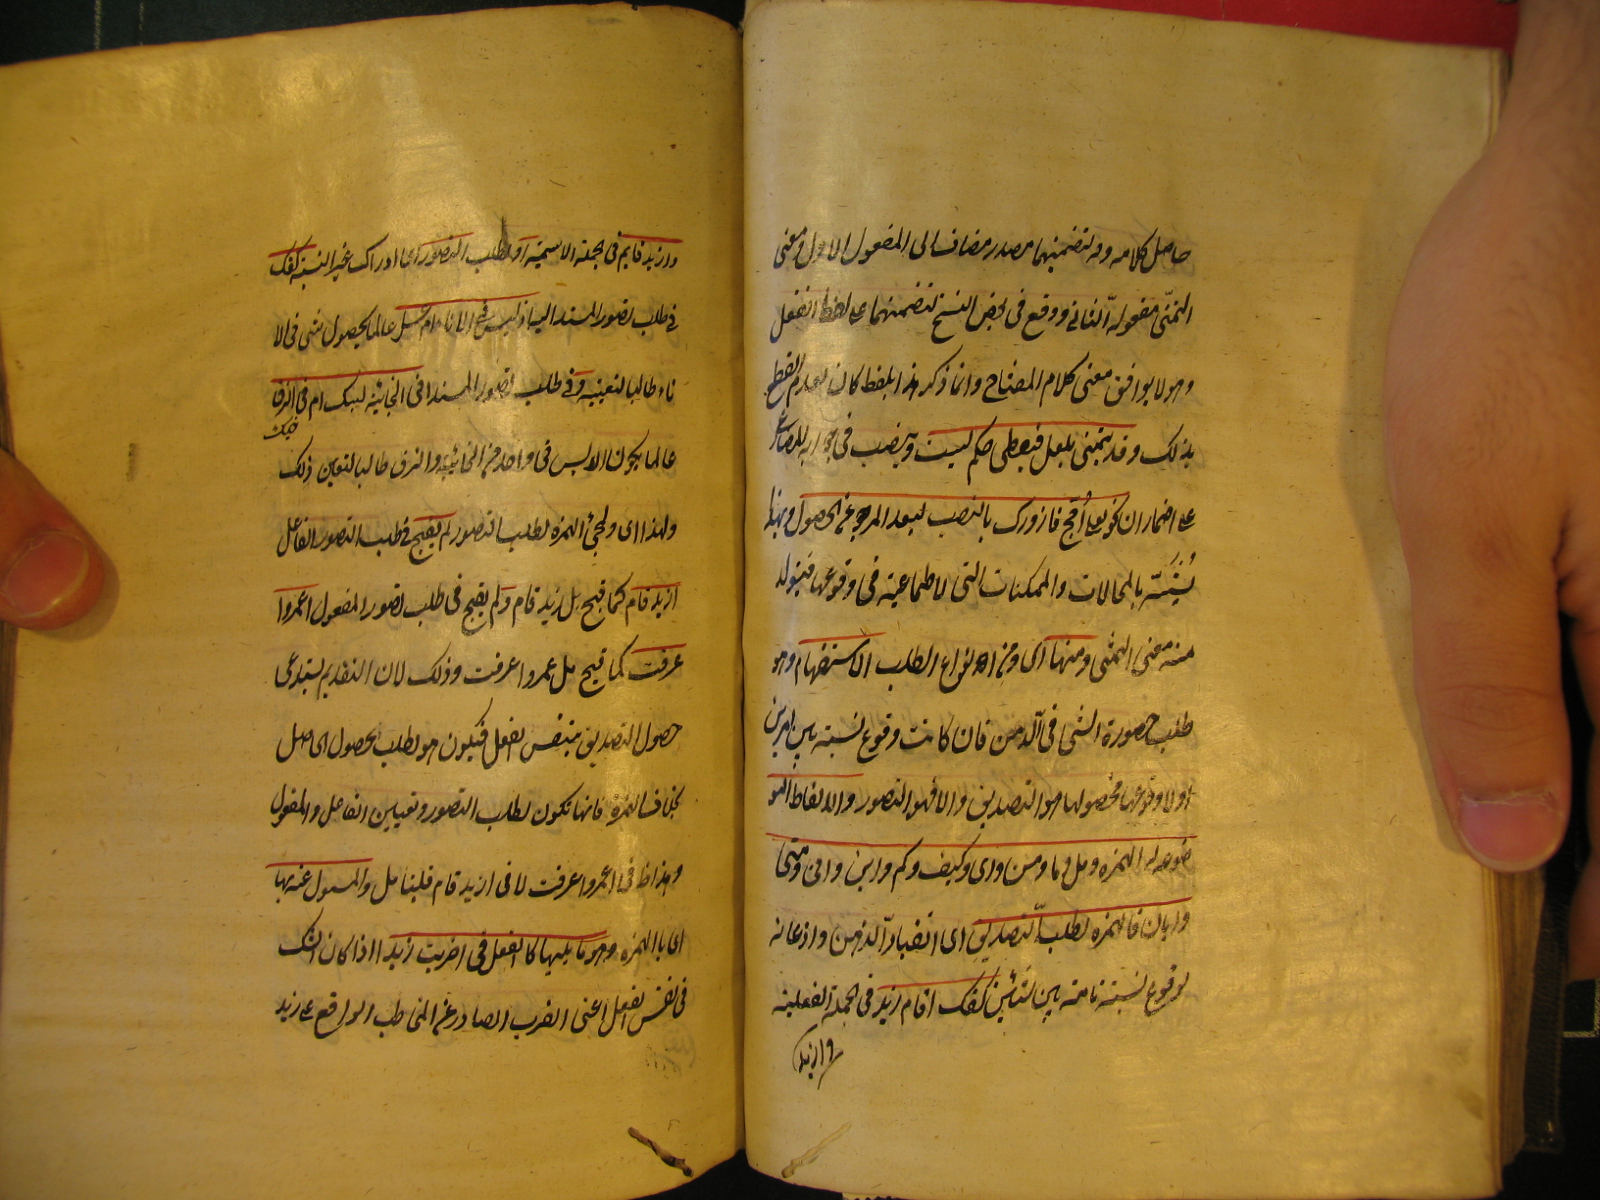 حاصل كلامه وله لتضمينهما مصدر مضاف الى المفعول الاول ومعنى
التمنّى مفعوله الثانى ووقع فى بعض النسخ لتضمنهما على لفظ التفعل
وهو لا يوافق معنى كلام المفتاح وانما ذكر هذا بلفظ كان لعدم القطع
بذلك وقد يتمنى بلعل فيعطى حكم ليت وينصب فى جوابه المضارع
على اضمار ان نحو لعلى احج فازورك بالنصب لبعد المرجو عن الحصول وبهذا
يشبه بالمحالات والممكنات التى لا طماعية فى وقوعها فيتولد
منه معنى التمنى ومنها اى ومن انواع الطلب الاستفهام وهو
طلب حصول صورة الشى فى الذهن فان كانت وقوع نسبة بين امرين
او لا وقوعها فحصولها هو التصديق والا فهو التصور والالفاظ المو
ضوعة له الهمزه وهل وما ومن واى وكيف وكم واين وانى ومتى
وايان فالهمزه لطلب التصديق اى انقياد الذهن واذعانه
لوقوع نسبة تامة بين الشيئين كقولك اقام زيد فى الجملة الفعلية
وازيد
وازيد قايم فى الجملة الاسمية او لطلب التصور اى ادراك غير النسبة كقولك
فى طلب تصور المسند اليه ادبس فى الاناء ام عسل عالما بحصول شى فى الا
ناء طالبا لتعيينه وفى طلب تصور المسند افى الخابية دبسك ام فى الزق
عالما بكون الدبس فى واحد من الخابية والزق طالبا لتعين ذلك
ولهذا اى ولمجئ الهمزه لطلب التصور لم يقبح فى طلب التصور الفاعل
ازيد قام كما قبح هل زيد قام ولم يقبح فى طلب تصور المفعول اعمروا
عرفت كما قبح هل عمروا عرفت وذلك لان التقديم يستدعى
حصول التصديق بنفس الفعل فيكون هل لطلب حصول الحاصل
بخلاف الهمزه فانها تكون لطلب التصور وتعيين الفاعل والمفعول
وهذا ظ فى اعمروا عرفت لا فى ازيد قام فلينامل والمسئول عنه بها
اى بالهمزه هو ما يليها كالفعل فى اضربت زيدا اذا كان الشك
فى نفس الفعل اعنى الضرب الصادر عن المخاطب الواقع على زيد